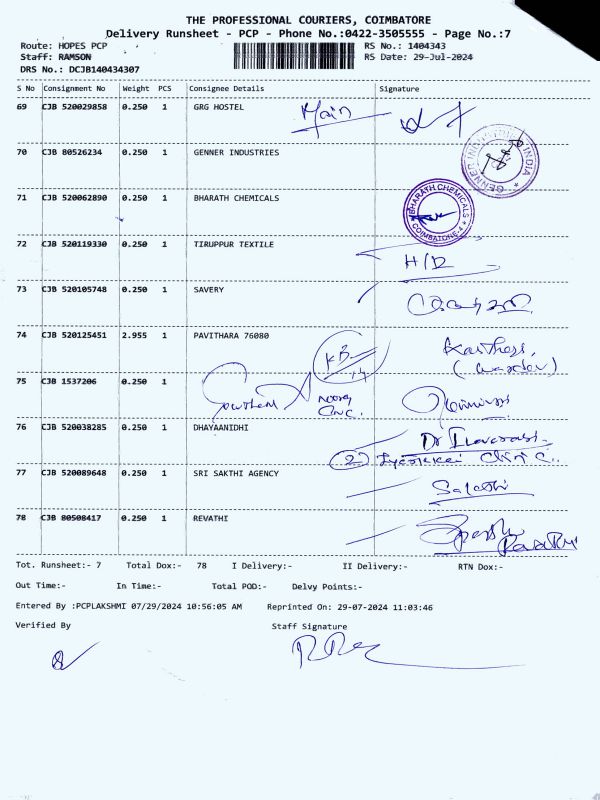 THE PROFESSIONAL COURIERS, COIMBATORE
Delivery Runsheet - PCP - Phone No.:0422-3505555 - Page No.:7
Route: HOPES PCP RS No.: 1404343
Staff: RAMSON RS Date: 29-Jul-2024
DRS No.: DCJB140434307
S No Consignment No Weight PCS Consignee Details Signature
69 CJB 520029858 0.250 1 GRG HOSTEL Main
70 CJB 80526234 0.250 1 GENNER INDUSTRIES
GENNER INDUSTRIES INDIA
71 CJB 520062890 0.250 1 BHARATH CHEMICALS
BHARATH CHEMICALS COIMBATORE-4
72 CJB 520119330 0.250 1 TIRUPPUR TEXTILE
H/D
73 CJB 520105748 0.250 1 SAVERY
74 CJB 520125451 2.955 1 PAVITHARA 76080
75 CJB 1537206 0.250 1
76 CJB 520038285 0.250 1 DHAYAANIDHI
77 CJB 520089648 0.250 1 SRI SAKTHI AGENCY
78 CJB 80508417 0.250 1 REVATHI
Tot. Runsheet:- 7 Total Dox:- 78 I Delivery:- II Delivery:- RTN Dox:-
Out Time:- In Time:- Total POD:- Delvy Points:-
Entered By :PCPLAKSHMI 07/29/2024 10:56:05 AM Reprinted On: 29-07-2024 11:03:46
Verified By Staff Signature